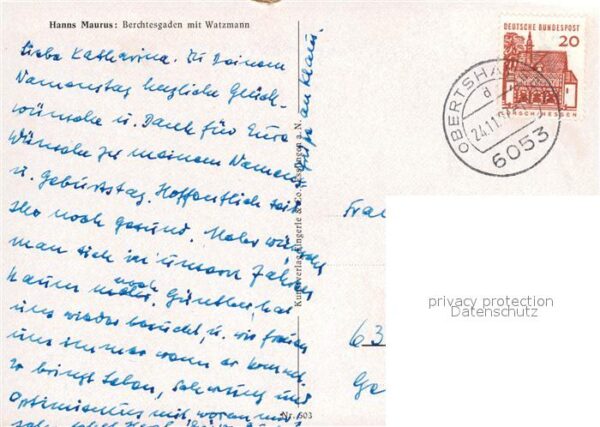 Hanns Maurus: Berchtesgaden mit Watzmann
Liebe Katharina. Zu Deinem
Namenstag herzliche Glück-
wünsche u. Dank für Eure
Wünsche zu meinem Namens
u. Geburtstag. Hoffentlich seid
Ihr noch gesund. Mehr wünscht
man sich in unsern Jahren
kaum noch. Günther hat
uns wieder besucht, u. wir freuen
uns immer wenn er kommt.
Er bringt Leben, Schwung und
Optimismus mit, woran
Kunstverlag Zingerle & Co.
Nr. 603
DEUTSCHE BUNDESPOST
20
LORSCH/HESSEN
OBERTSHAUSEN
d
24.11.
6053
Frau
63
privacy protection
Datenschutz